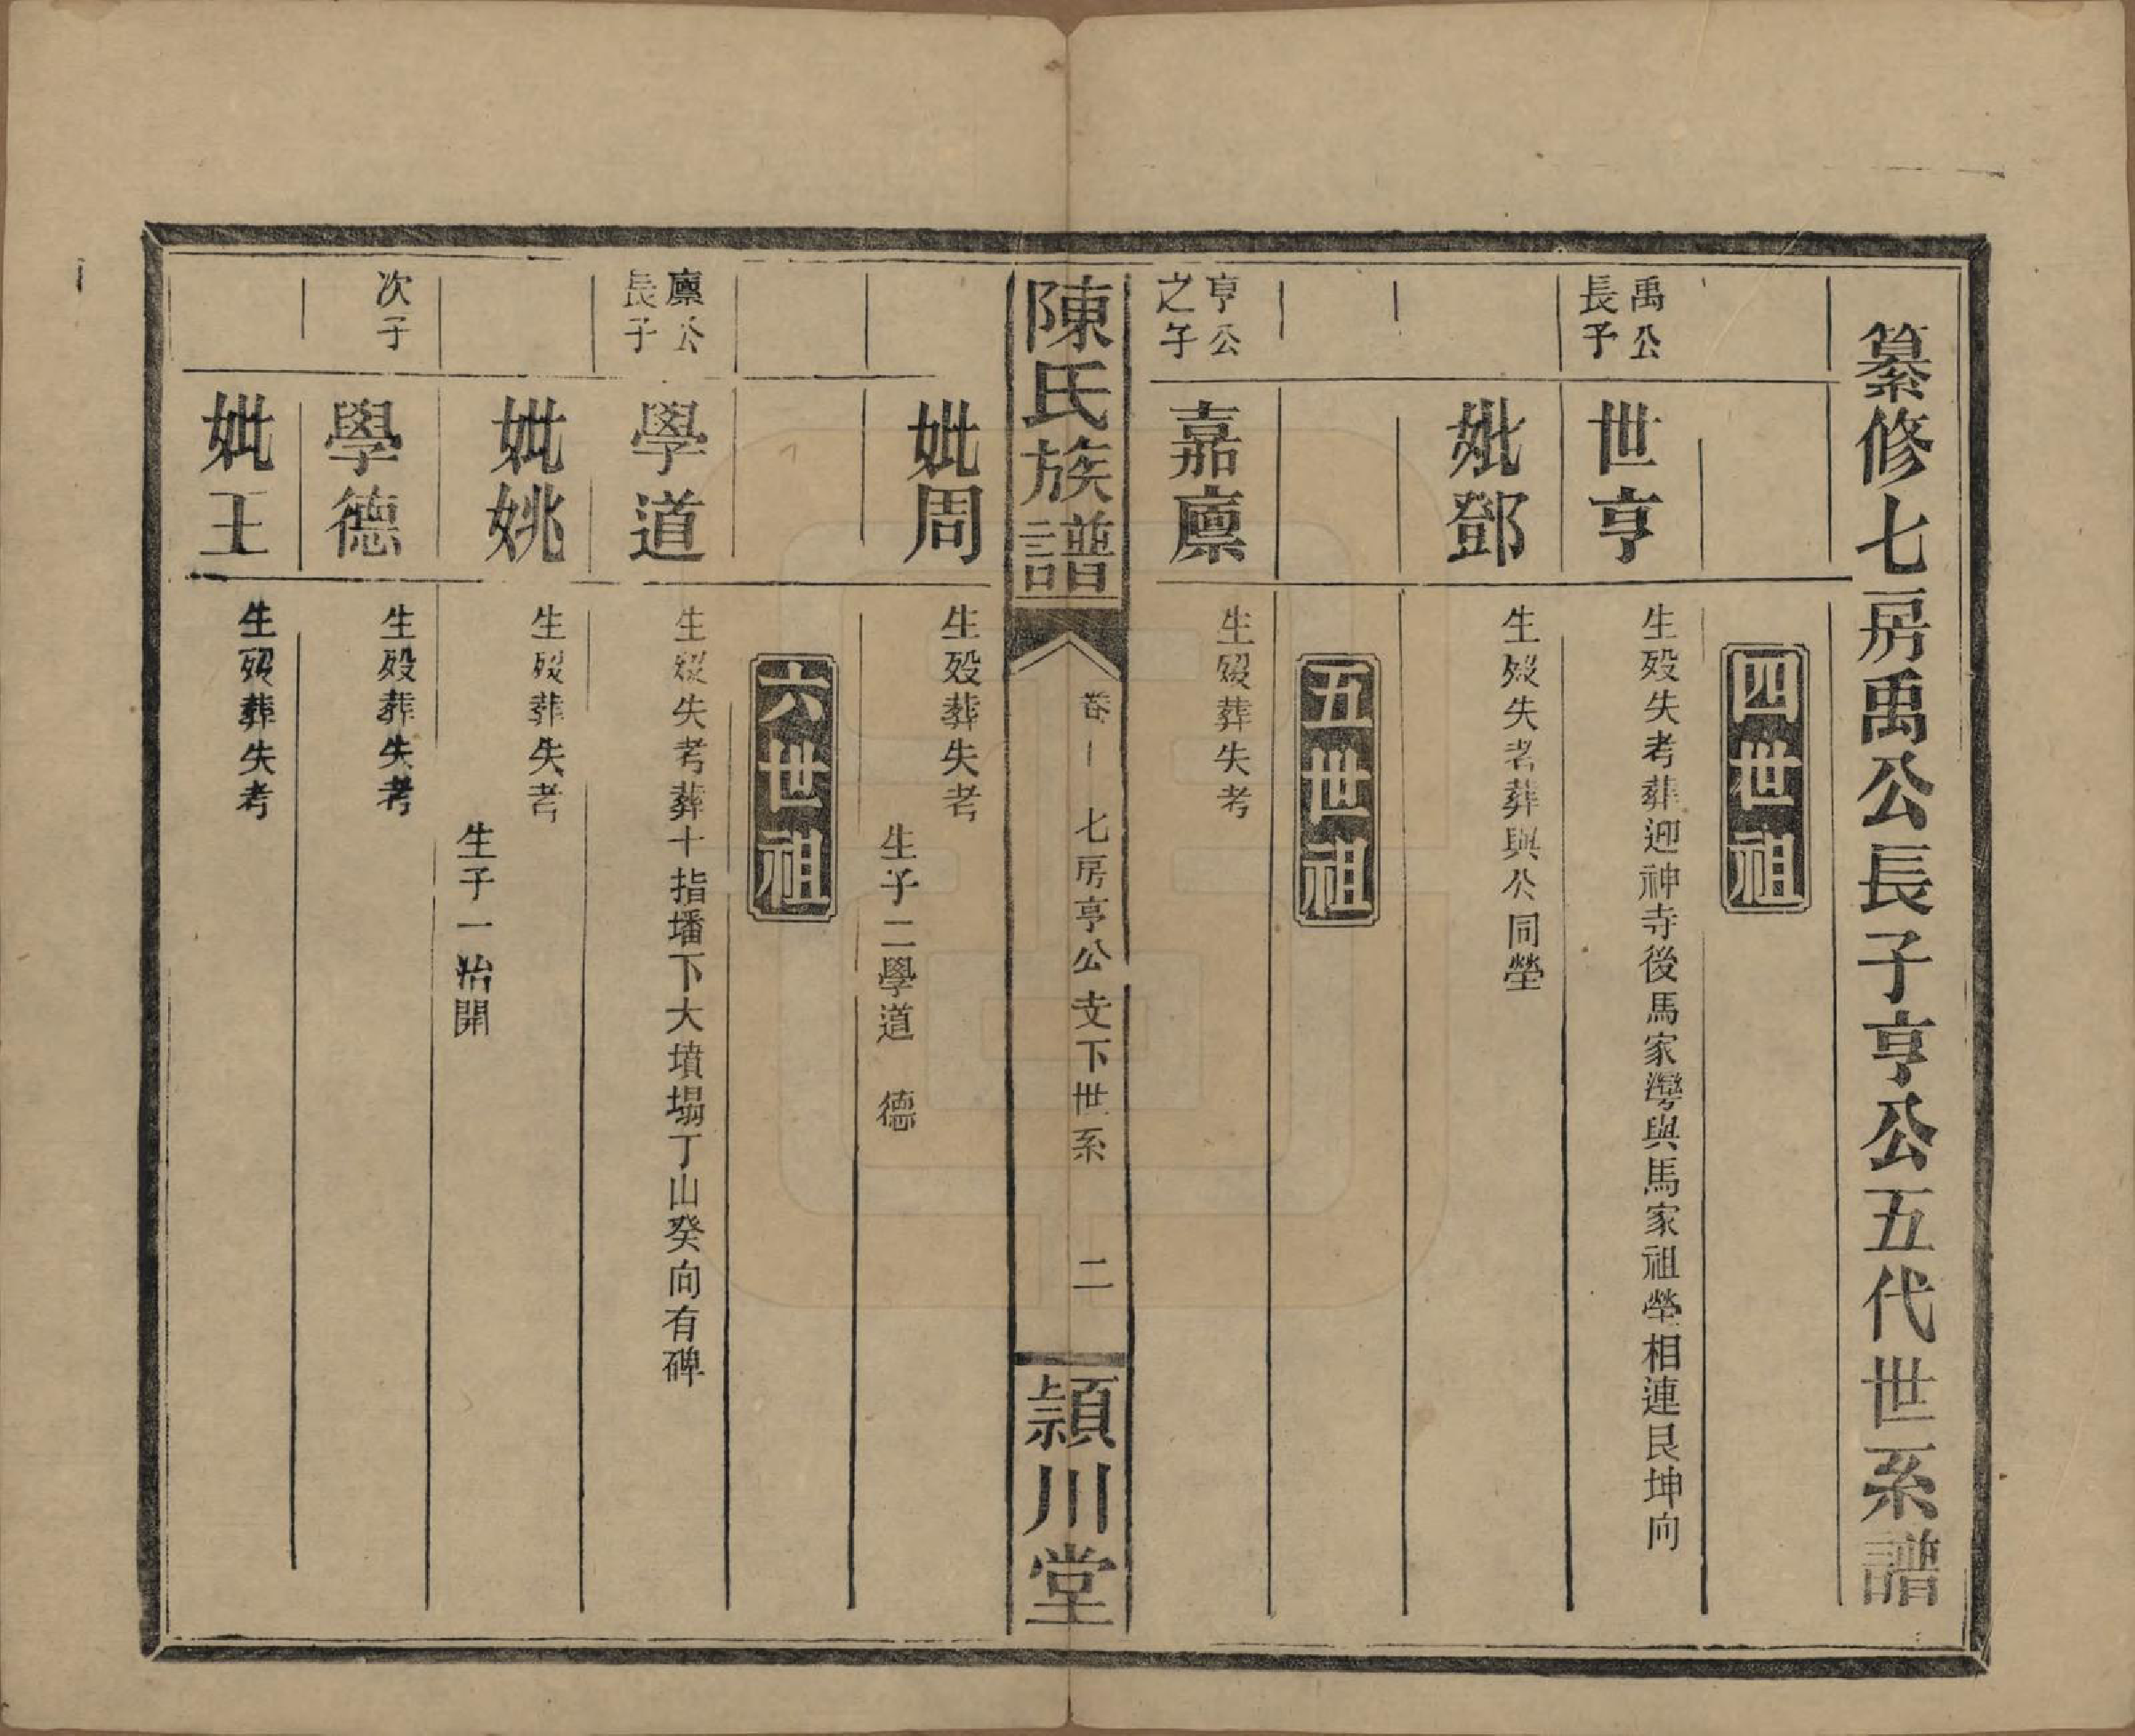 纂修七房禹公長子亨公五代世系譜
四世祖
禹公
長子
世亨
生殁失考葬迎神寺後馬家灣與馬家祖塋相連艮坤向
妣鄧
生殁失考葬與公同塋
五世祖
亨公
之子
嘉廪
生殁葬失考
陳氏族譜
卷一
七房亨公支下世系
二
頴川堂
妣周
生殁葬失考
生子二學道 德
六世祖
廪公
長子
學道
生殁失考葬十指墦下大墳塲丁山癸向有碑
妣姚
生殁葬失考
生子一 開
次子
學德
生殁葬失考
妣王
生殁葬失考